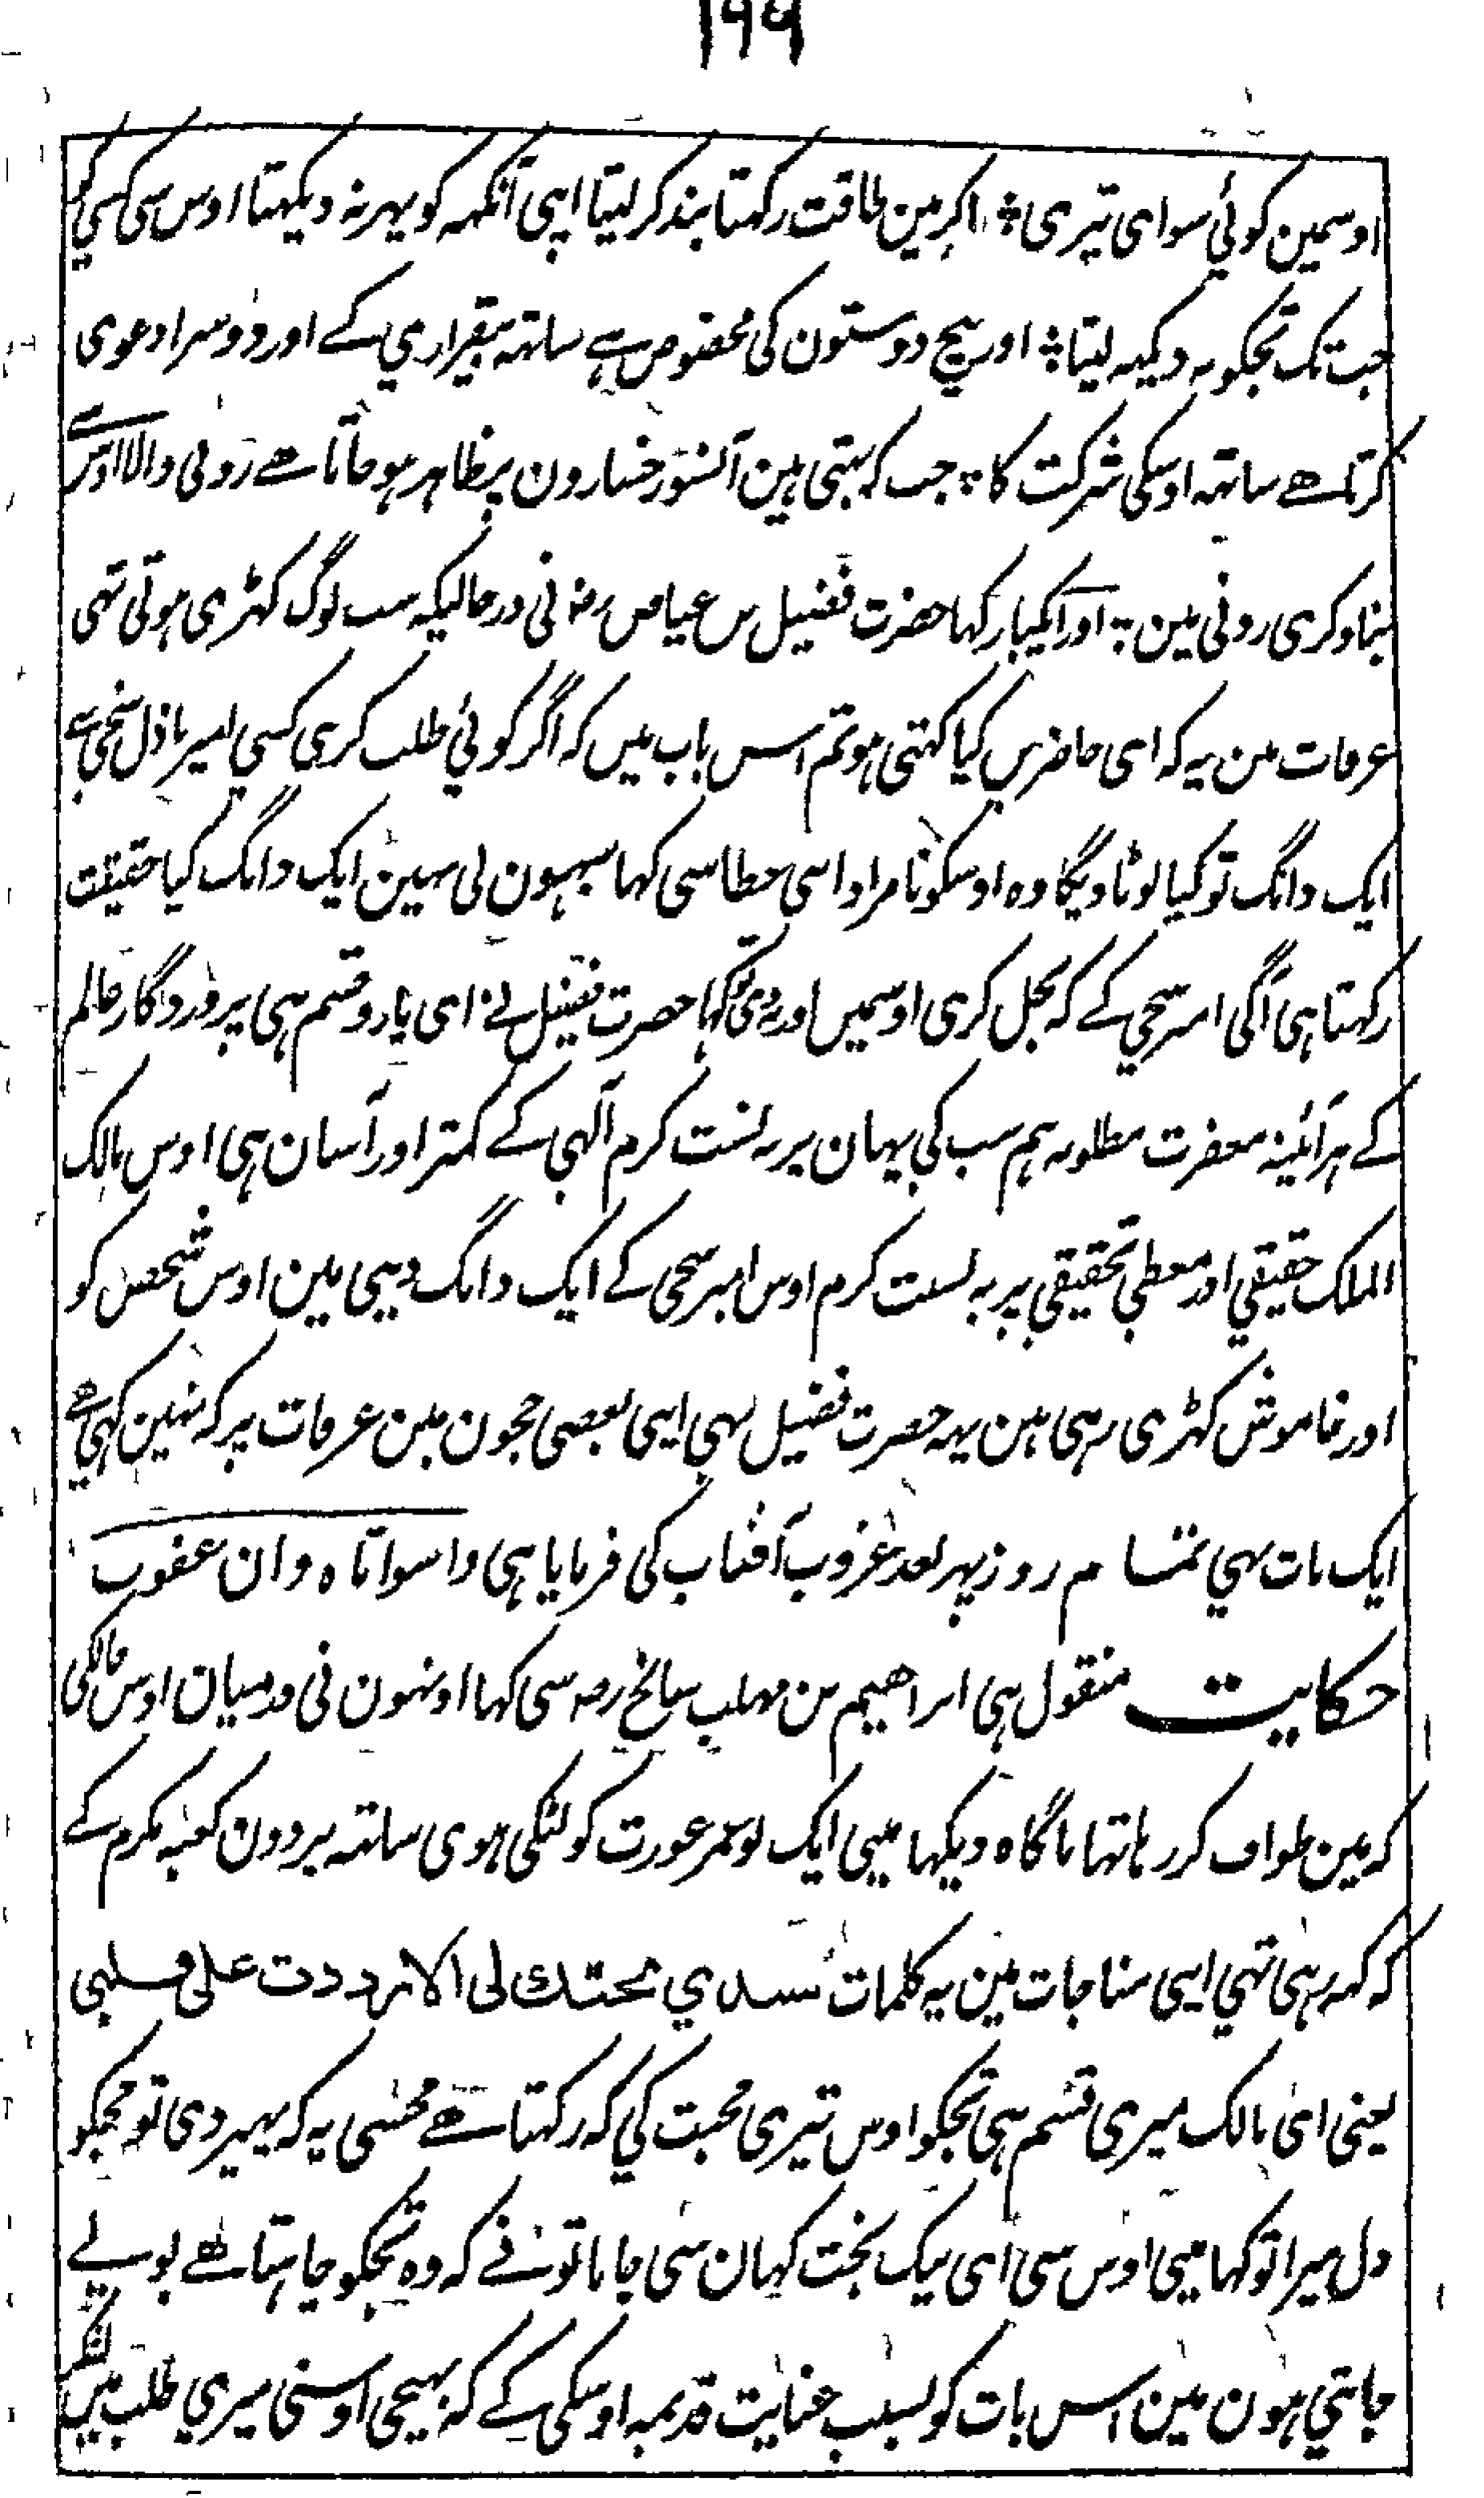 ۱۹۵
اوسمین کوئي سوای تیری ؞ اکر مین طاقت رکہتا بند کر لیتا اپنی آنکہہ کو پہر نہ دیکہتا اوس سی کسی کو
جب تک تجکو نہ دیکہہ لیتا ؞ اور یہ دوستون کی مخصوص ہے ساتہہ بیقراري کے اور دوسرا دعوی
کرتا ہے ساتہہ اوسکی شرکت کا ؞ جب کہ بہتی ہین آنسو رخسارون پر ظاہر ہو جاتا ہے رونی والا اوس سے
بناوکری رونی مین ؞ اور ایکبار کہا حضرت فضیل بن عیاض رض نی درحالیکہ سب لوگ کہڑی ہوئی تہی
عرفات مین یہ کہ ای حاضرین کیا کہتی ہو تم اس باب میں کہ اگر کوئي طلب کری کسی امیر باذل سخی سے
ایک دانگ تو کیا لوٹا دیگا وہ اوسکو نامراد اسی عطا سی کہا سبہون نی نہین ایک دانگ کیا حقیقت
رکہتا ہی آگی امیر سخی کے کہ بخل کری اوسمیں اور ندی کہا حضرت فضیل نے ای یارو قسم ہی پروردگار عالم
کے ہر آئینہ مغفرت مطلوبہ ہم سب کي یہان پر بہ نسبت کرم آلہی کے کمتر اور آسان ہی اوس مالک
الملک حقیقي اور معطی تحقیقي پر بہ نسبت کرم اوس امیر سخی کے ایک دانگ دینی مین اوس شخص کو
اور خاموش کہڑی رہی ہین یہہ حضرت فضیل بہی اپنی بعضی حجون مین عرفات پر کہ نہین کہی ہے
ایک بات بہي تمام روز پہر بعد غروب آفتاب کی فرمایا ہی واسواتاہ وان عفوت
حکایت منقول ہی ابراهیم بن مهلب سایح رح سی کہا اونہون نی درمیان اوس حال کی
کہ مین طواف کر رہا تہا ناگاہ دیکہا مینی ایک نوعمر عورت کو لٹکی ہوی ساتہہ پردون کعبہ مکرم کے
کہ کہہ رہی تہي اپنی مناجات مین یہ کلمات سیدي بحبك لى الا رددت على قلبى
یعنی ای مالک میری قسم ہی تجکو اوس تیری محبت کي کہ رکہتا ہے مجہسی یہ کہ پہیر دی تو مجکو
دل میرا تو کہا مینی اوس سی ای نیک بخت کہان سی جانا تونے کہ وہ تجکو چاہتا ہے بولے
جانتي ہون مین اس بات کو بسبب عنایت قدیمہ اوسکی کے کہ بہیجی اوسنی میري طلب مین لشکر